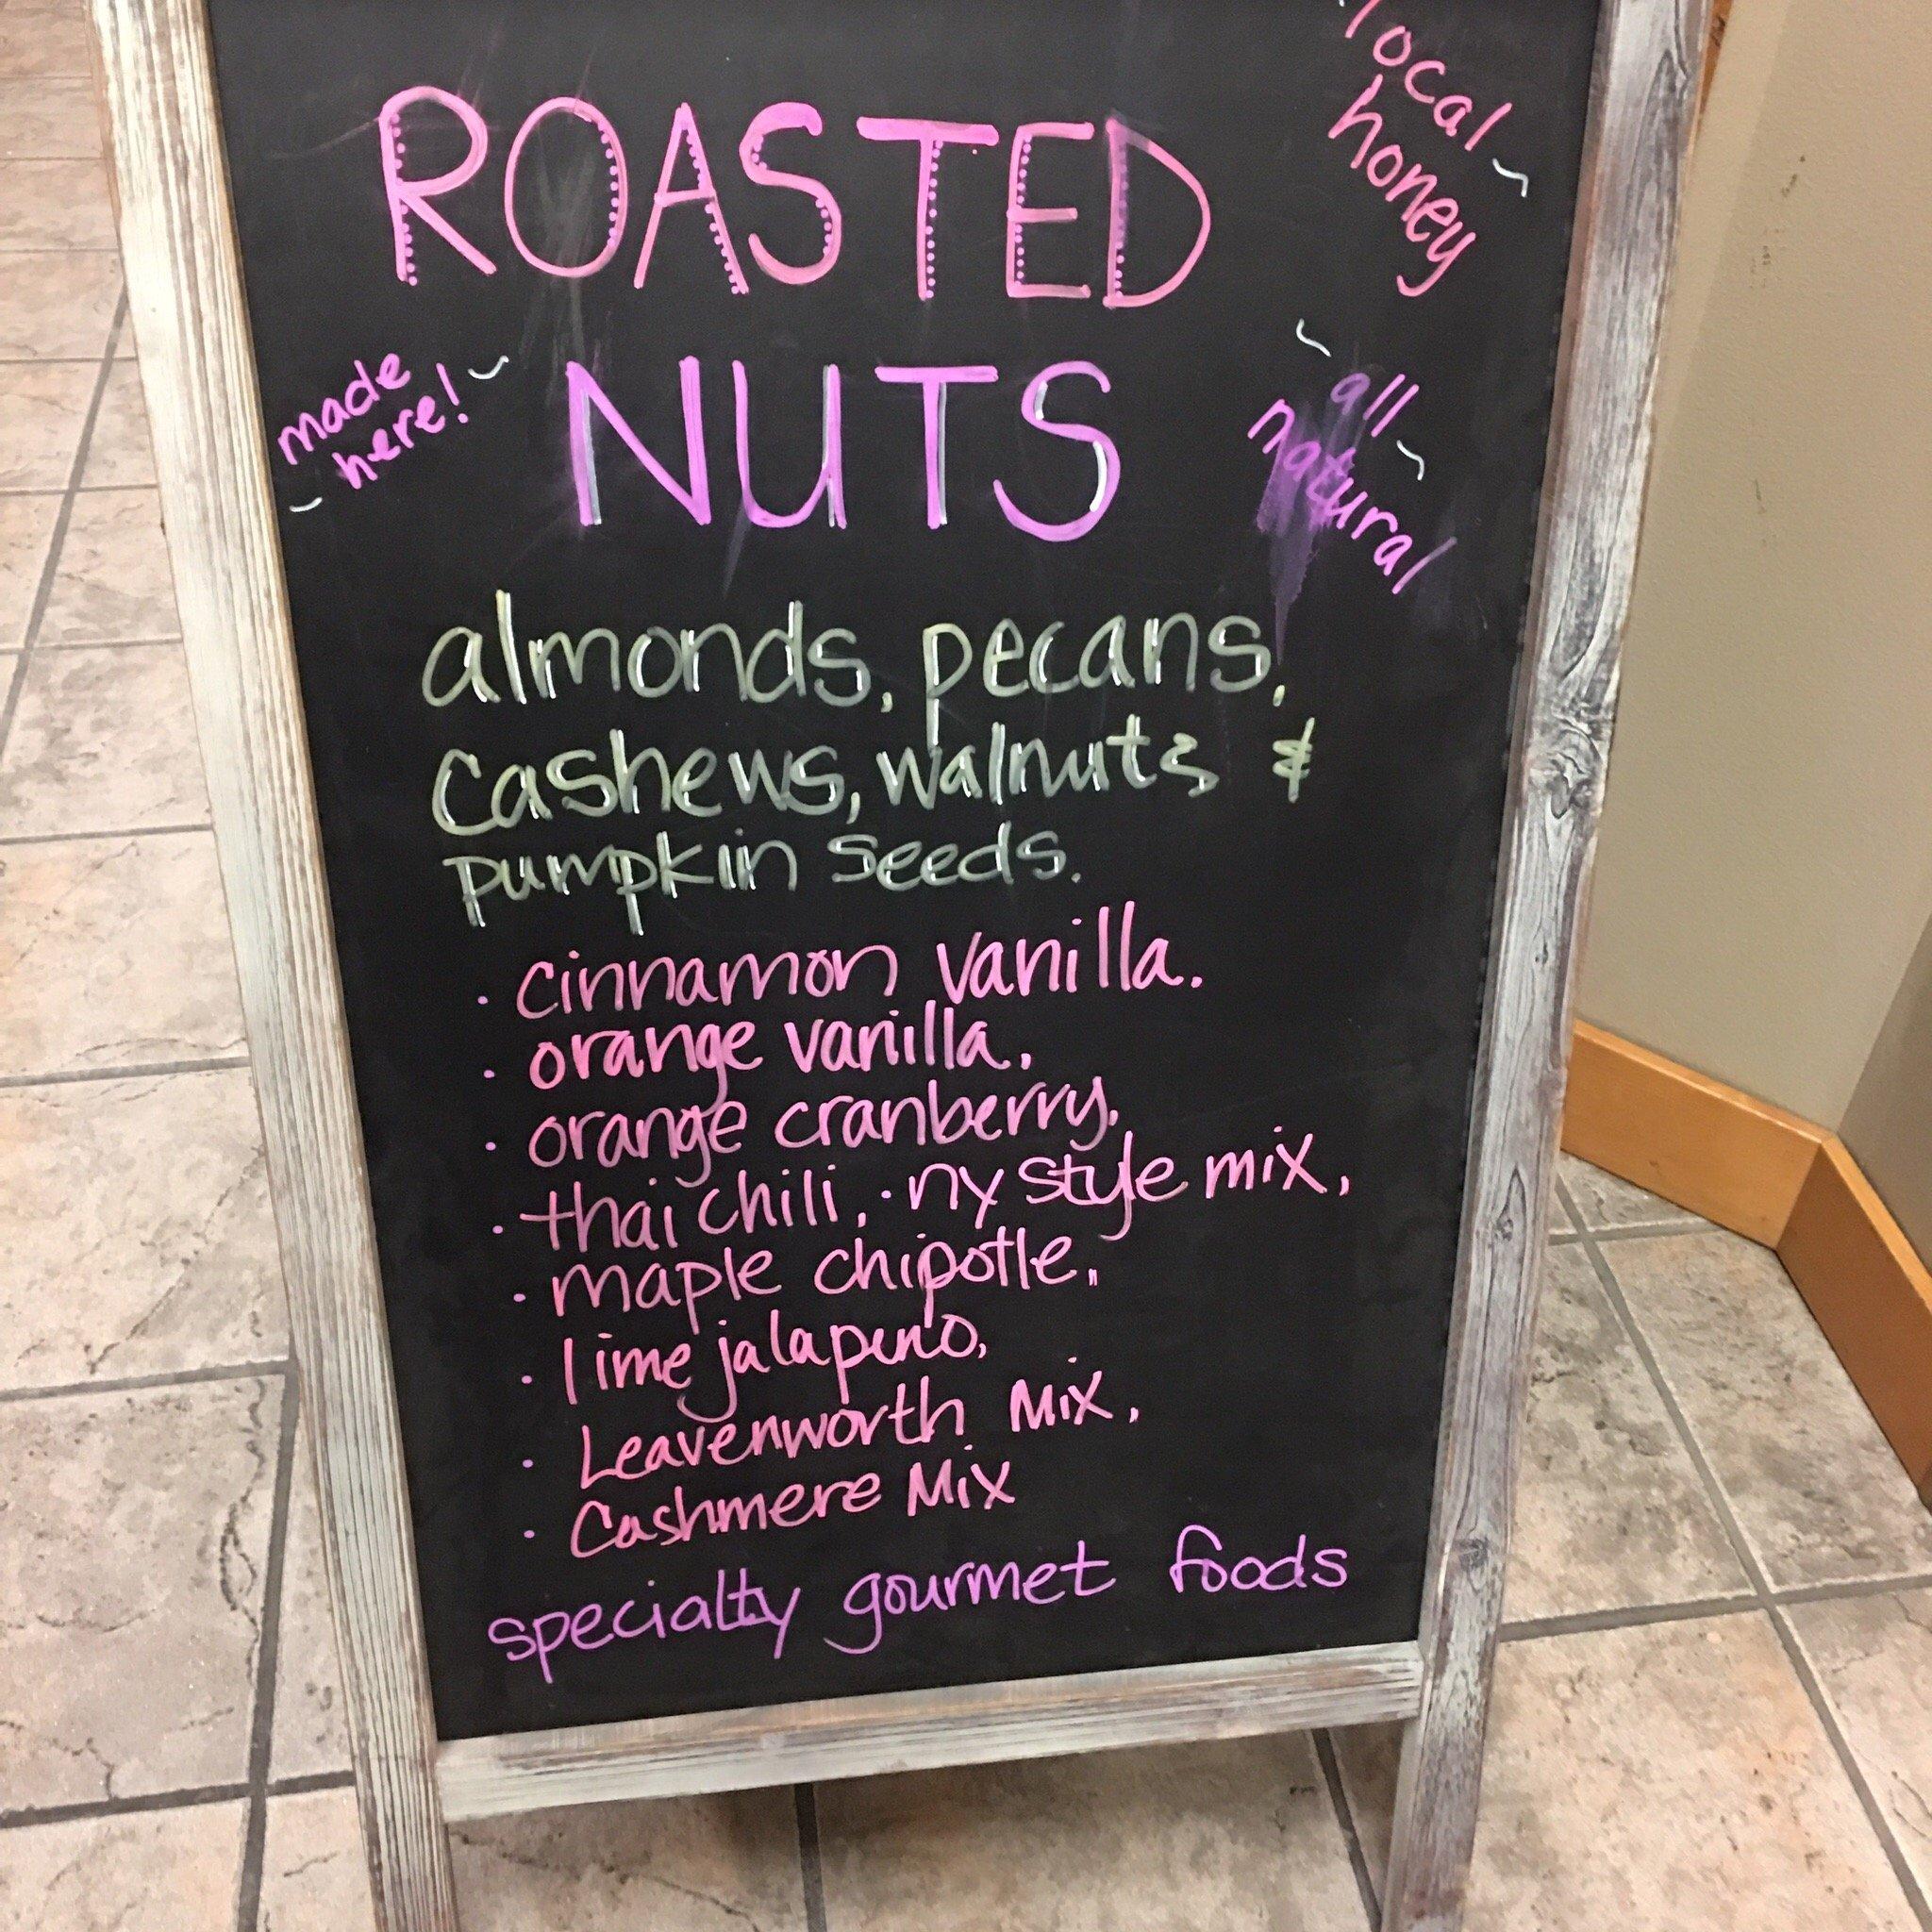 local
honey
ROASTED
NUTS
made
here!
all
natural
almonds, pecans,
cashews, walnuts &
pumpkin seeds.
· cinnamon vanilla.
· orange vanilla,
· orange cranberry,
· thai chili, · ny style mix,
· maple chipotle,
· lime jalapeno,
· Leavenworth Mix,
· Cashmere Mix
specialty gourmet foods